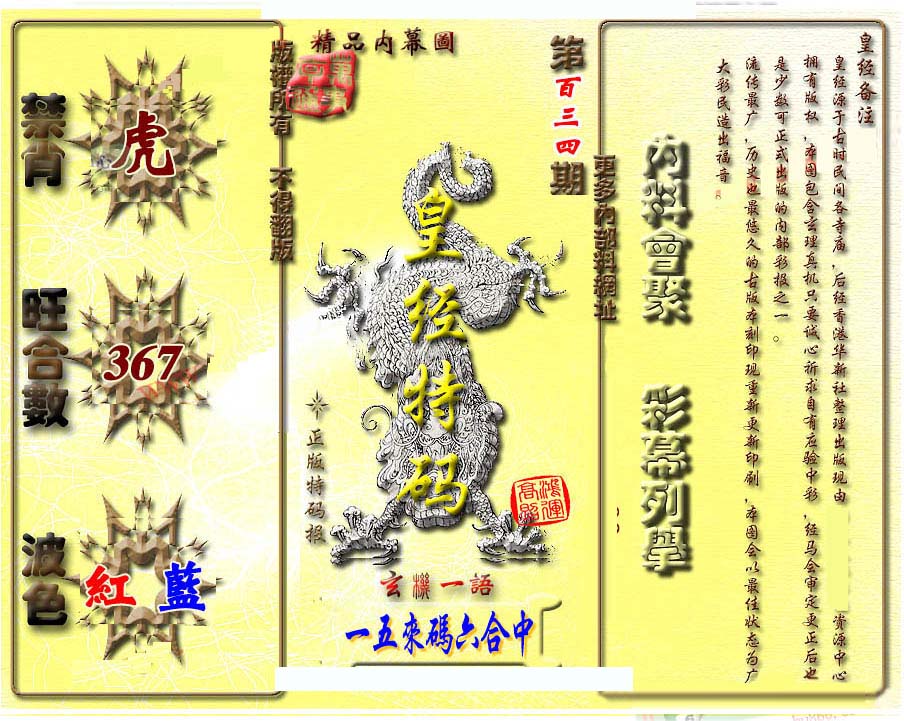 皇经备注
皇经源于古时民间各寺庙，后经香港华新社整理出版现由　资源中心
拥有版权，本图包含玄理真机只要诚心祈求自有应验中彩，经马会审定更正后也
是少数可正式出版的内部彩报之一。
流传最广，历史也最悠久的古版本刻印现重新更新印刷，本图会以最佳状态为广
大彩民造出福音
內料會聚　彩幕列舉
更多內部料網址
第百三四期
精品内幕圖
皇经特码
正版特码报
鴻運高照
玄機一語
一五來碼六合中
版權所有　不得翻版
禁肖
虎
旺合數
367
波色
紅 藍